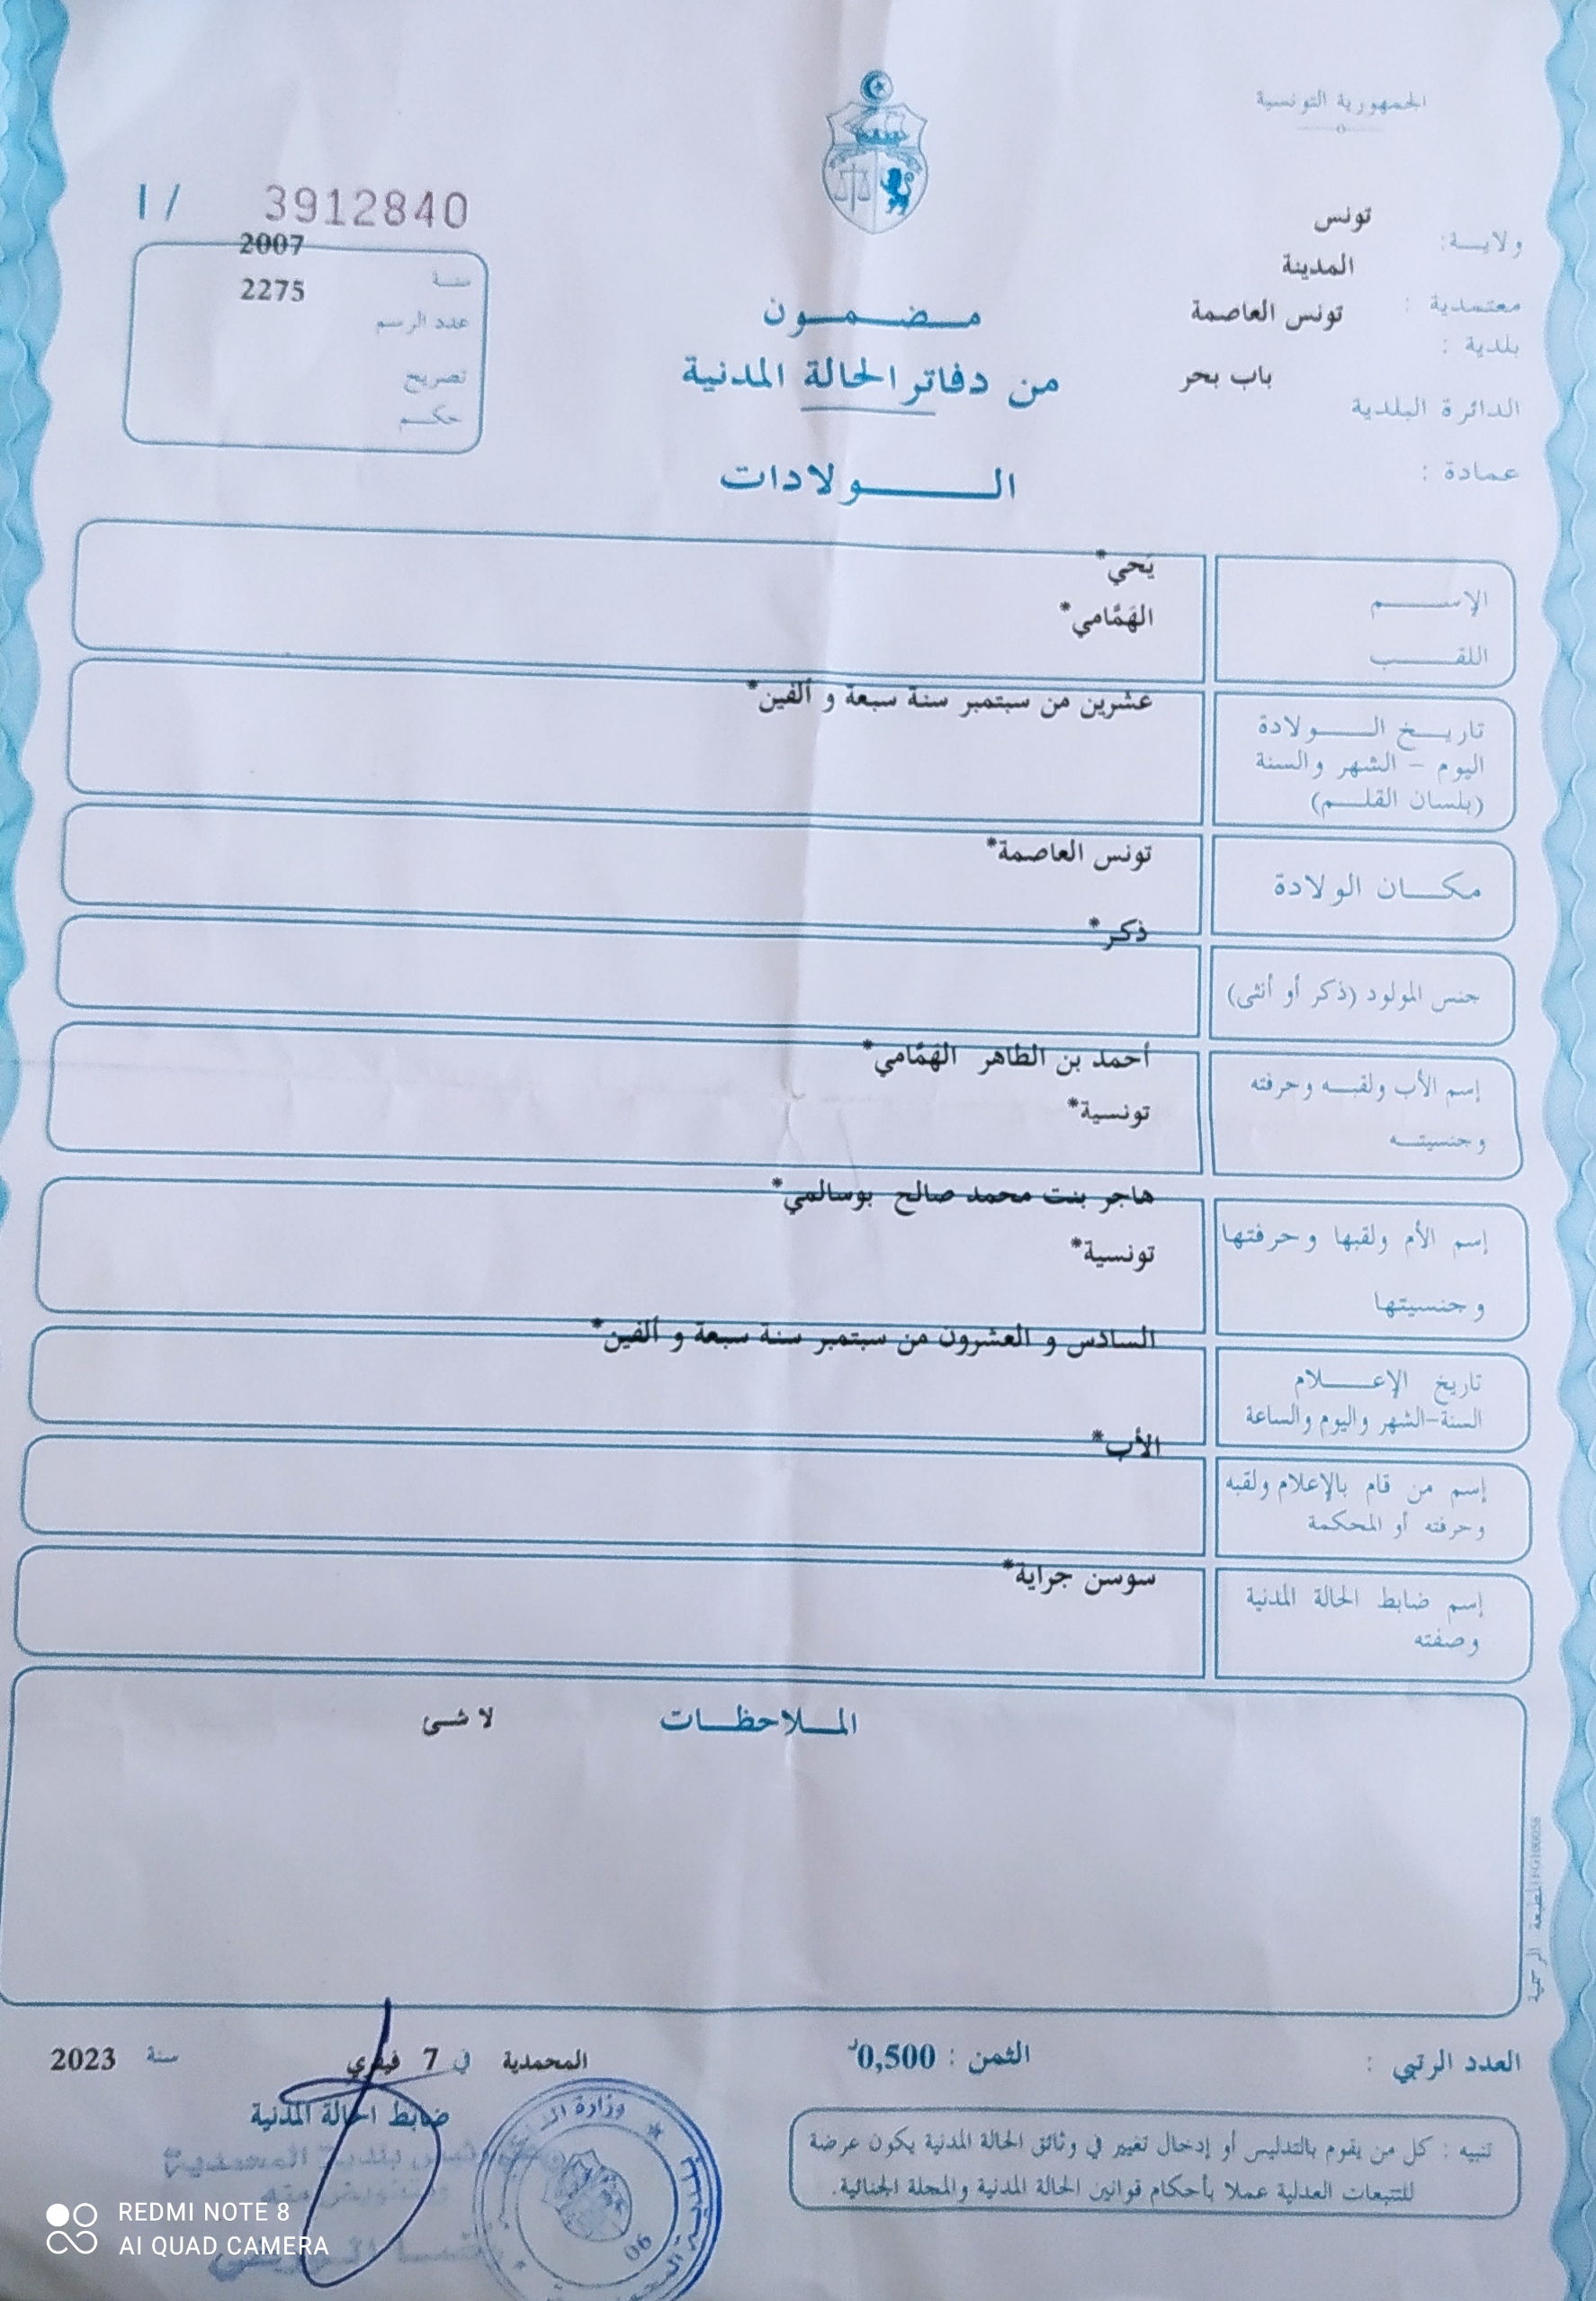 الجمهورية التونسية
ولايـــة: تونس
معتمدية : المدينة
بلدية : تونس العاصمة
الدائرة البلدية باب بحر
عمادة :
I / 3912840
سنـة 2007
عدد الرسم 2275
تصريح
حكـم
مـضـمـون
من دفاتر الحالة المدنية
الـولادات
الإســـم يَحي*
اللقـــب الهَمَّامي*
تاريــخ الـــولادة عشرين من سبتمبر سنة سبعة و ألفين*
اليوم – الشهر والسنة
(بلسان القلـــم)
مكـــان الولادة تونس العاصمة*
جنس المولود (ذكر أو أنثى) ذكر*
إسم الأب ولقبــه وحرفته أحمد بن الطاهر الهَمَّامي*
وجنسيتــه تونسية*
إسم الأم ولقبها وحرفتها هاجر بنت محمد صالح بوسالمي*
وجنسيتها تونسية*
تاريخ الإعـــلام السادس و العشرون من سبتمبر سنة سبعة و ألفين*
السنة-الشهر واليوم والساعة
إسم من قام بالإعلام ولقبه الأب*
وحرفته أو المحكمة
إسم ضابط الحالة المدنية سوسن جراية*
وصفته
المـلاحظـات لا شئ
المطبعة الرسمية
العدد الرتبي :
الثمن : 0,500د
المحمدية في 7 فيفري سنة 2023
ضابط الحالة المدنية
تنبيه : كل من يقوم بالتدليس أو إدخال تغيير في وثائق الحالة المدنية يكون عرضة
للتتبعات العدلية عملا بأحكام قوانين الحالة المدنية والمجلة الجنائية.
وزارة
06
REDMI NOTE 8
AI QUAD CAMERA